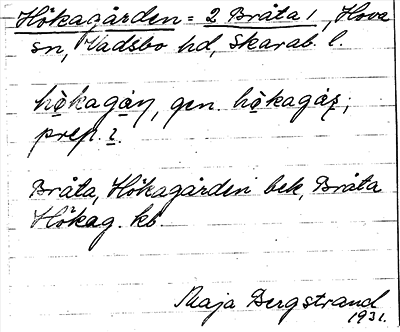 Hökagården = 2 Bråta 1, Hova
sn, Vadsbo hd, Skarab. l.
hökagån, gen. hökagåz;
prep. i.
Bråta, Hökagården bek, Bråta
Hökag. kb.
Maja Bergstrand
1931.